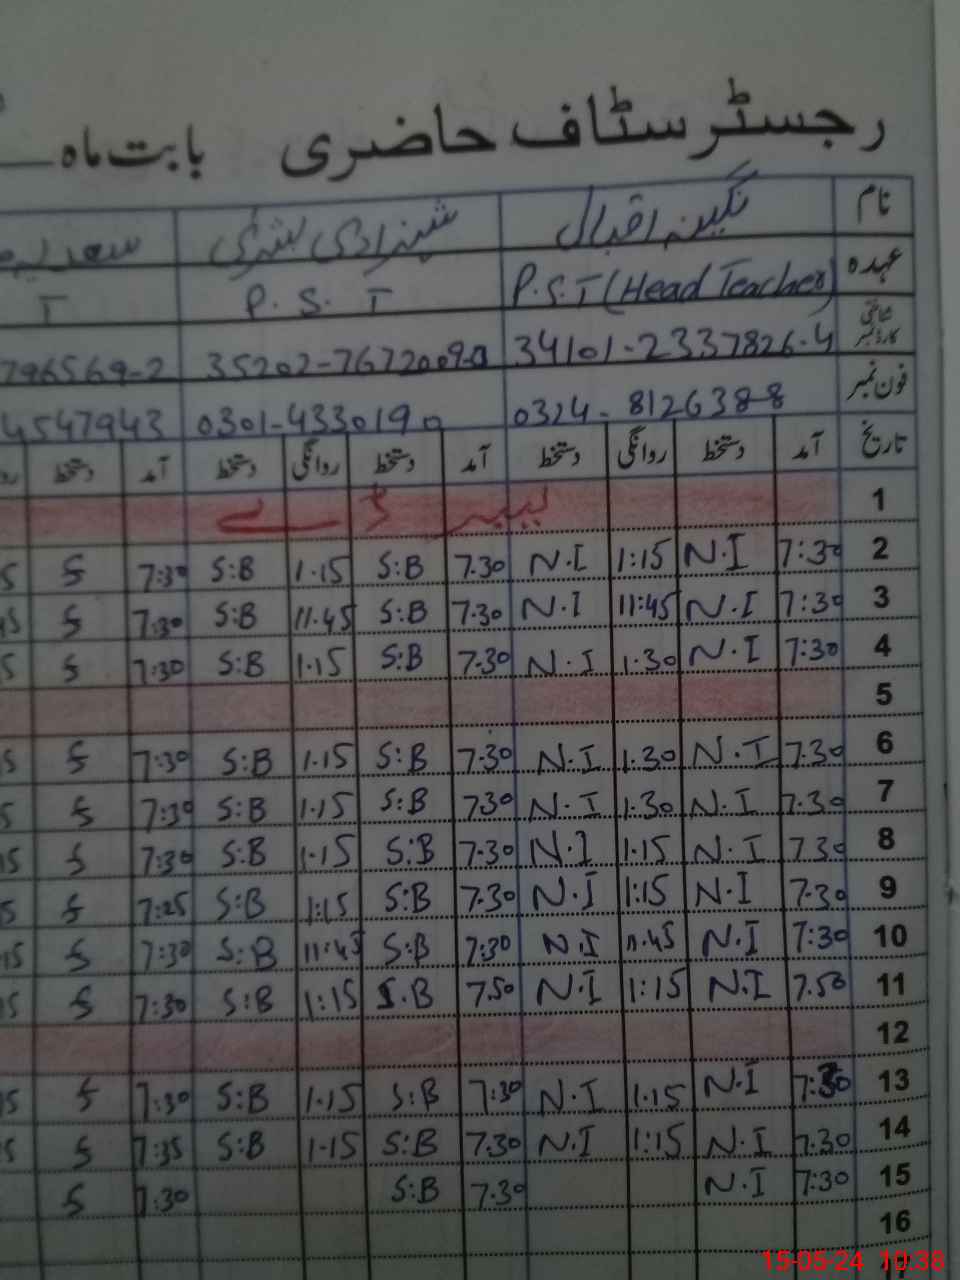 رجسٹر سٹاف حاضری بابت ماہ
نام نگینہ اقبال شہزادی بشریٰ سعدیہ
عہدہ P.S.T (Head Teacher) P. S. T T
شناختی کارڈ نمبر 34101-2337826-4 35202-7672009-0 796569-2
فون نمبر 0324-8126388 0301-4330190 4547943
تاریخ آمد دستخط روانگی دستخط آمد دستخط روانگی دستخط آمد دستخط
1 لیبر ڈے
2 7:30 N.I 1:15 N.I 7.30 S:B 1.15 S:B 7:30
3 7:30 N.I 11:45 N.I 7.30 S:B 11.45 S:B 7:30
4 7:30 N.I 1.30 N.I 7.30 S:B 1.15 S:B 7:30
5
6 7.30 N.I 1.30 N.I 7.30 S:B 1.15 S:B 7:30
7 7.30 N.I 1.30 N.I 730 S:B 1.15 S:B 7:30
8 730 N.I 1.15 N.I 7.30 S:B 1.15 S:B 7:30
9 7.30 N.I 1:15 N.I 7.30 S:B 1:15 S:B 7:25
10 7:30 N.I 11.45 N.I 7:30 S:B 11:45 S:B 7:30
11 7.50 N.I 1:15 N.I 7.50 S.B 1:15 S:B 7:30
12
13 7:30 N.I 1.15 N.I 7:30 S:B 1.15 S:B 7:30
14 7.30 N.I 1:15 N.I 7.30 S:B 1.15 S:B 7:35
15 7:30 N.I 7.30 S:B 7:30
16
15-05-24 10:38